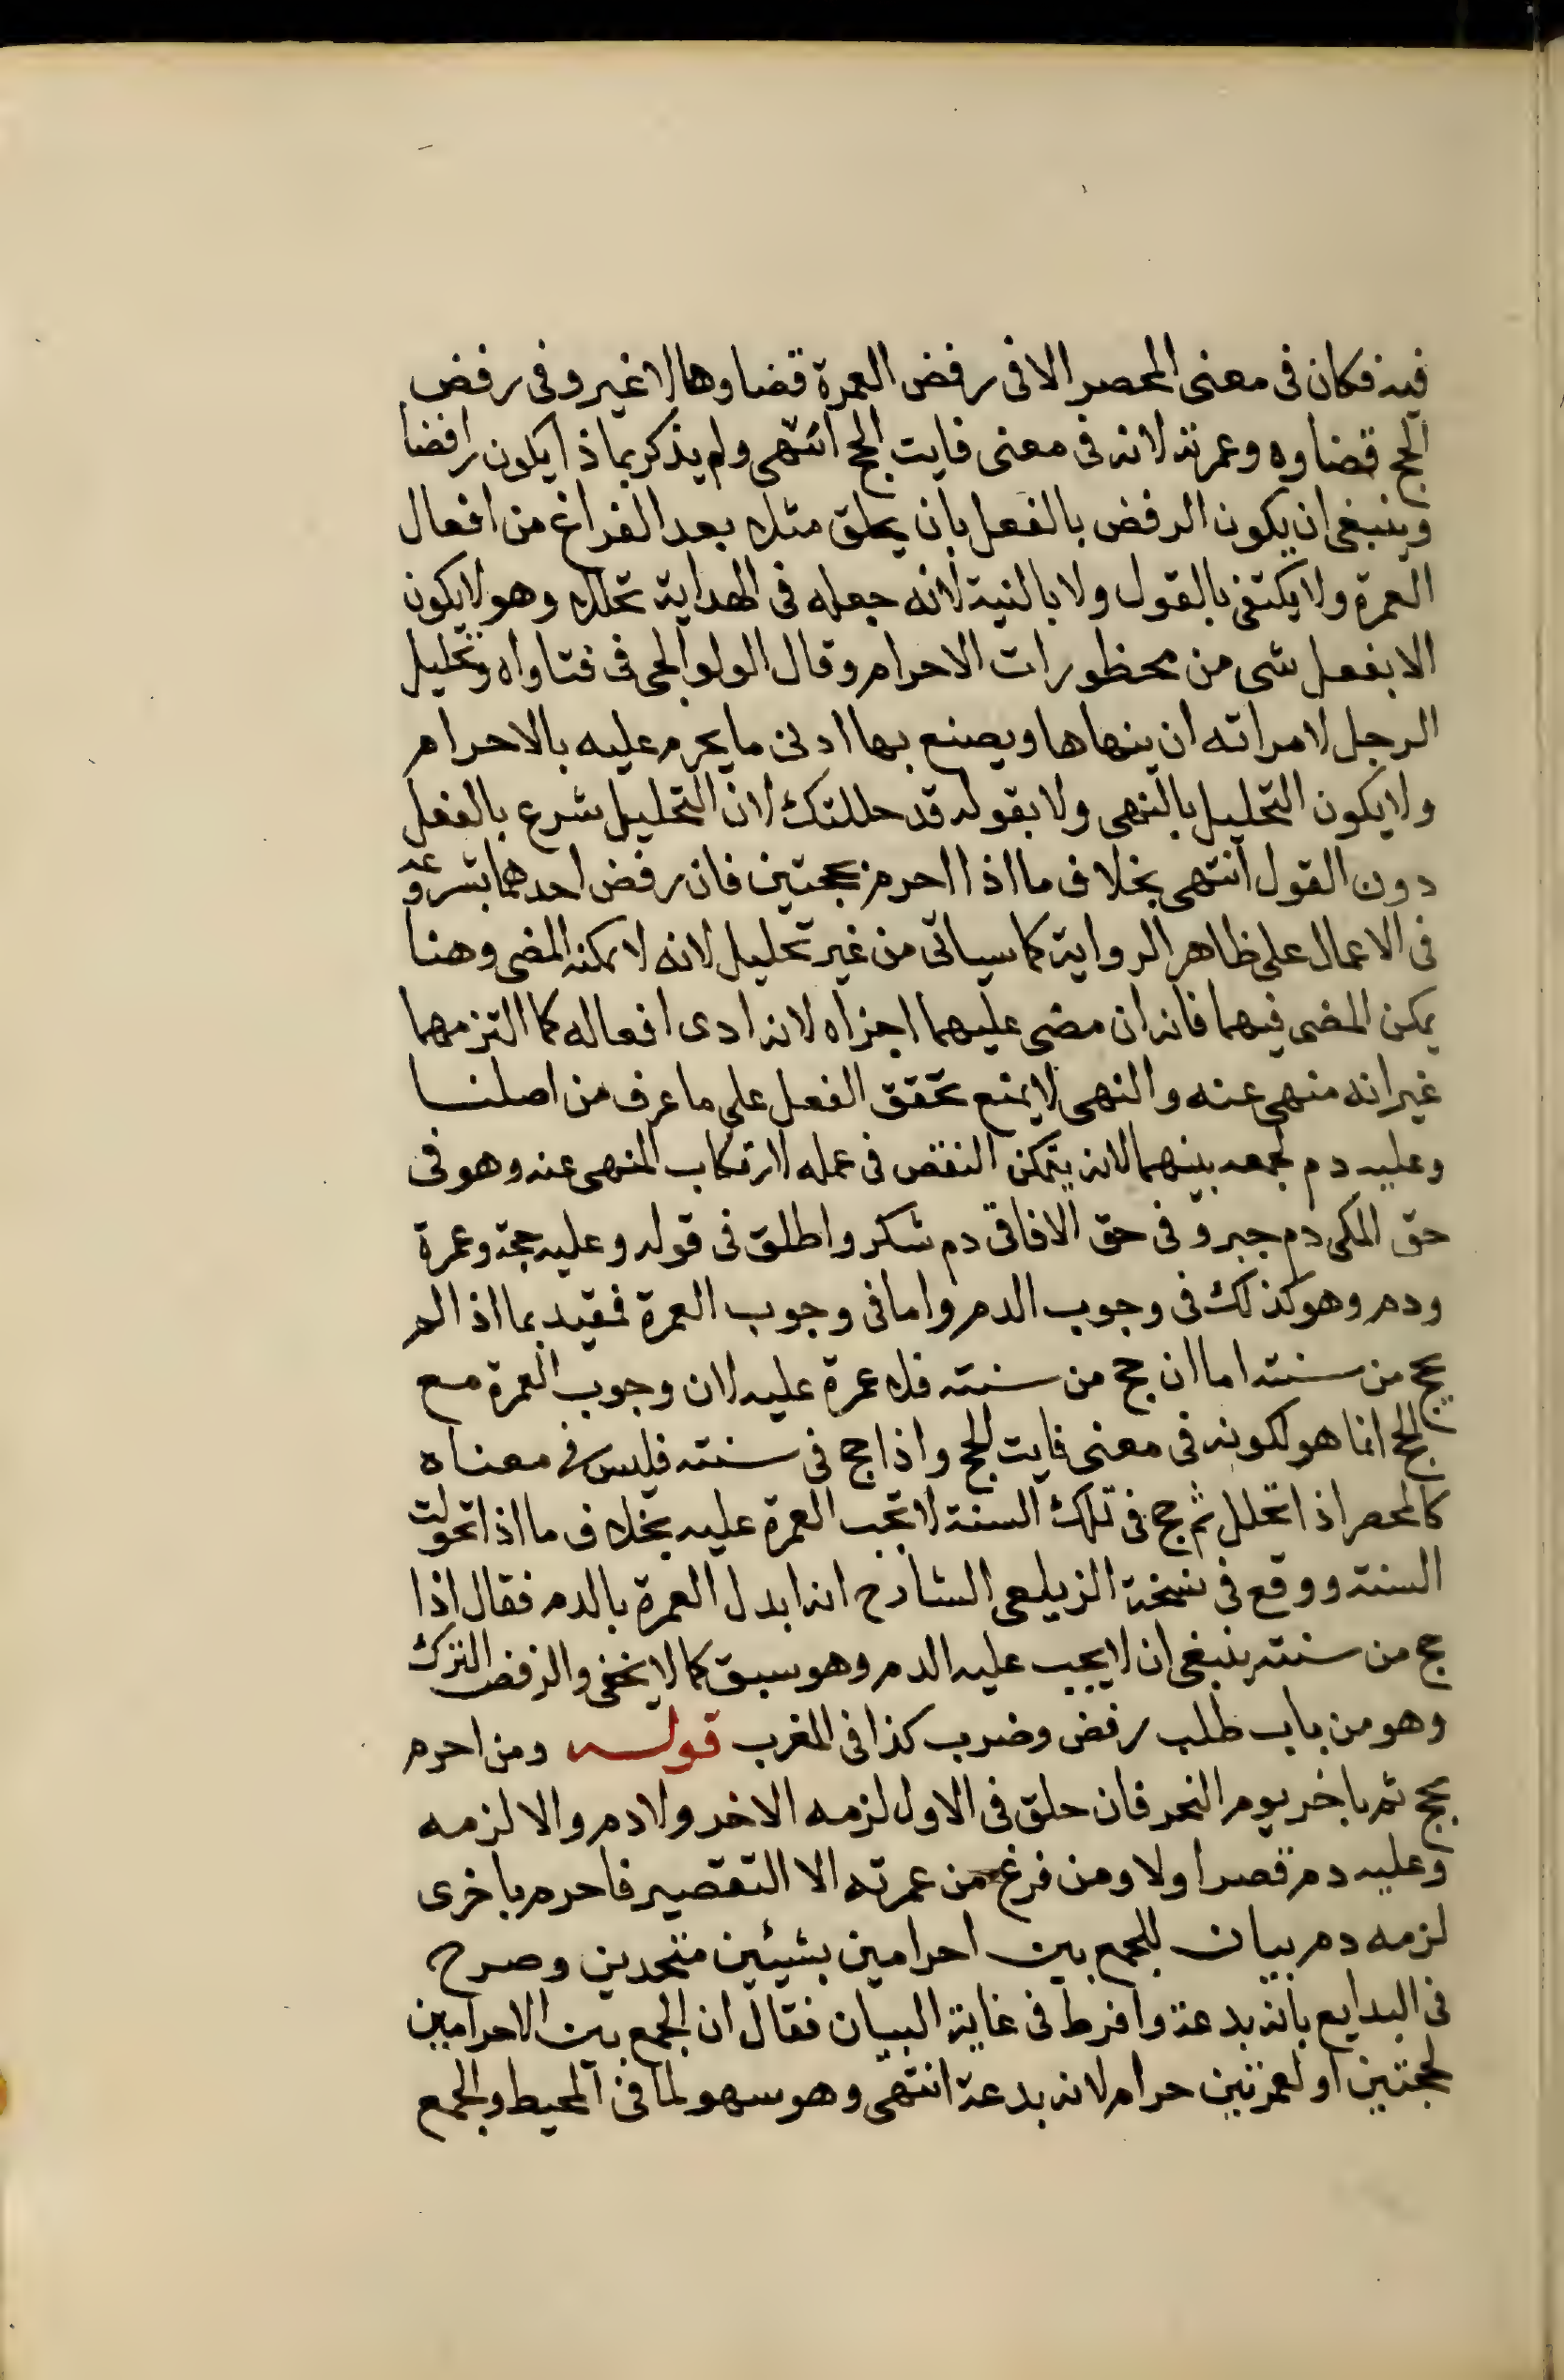 فيه فكان فى معنى المحصر الا فى رفض العمرة قضاوها لا غير وفى رفض
الحج قضاوه وعمرته لانه فى معنى فايت الحج انتهى ولم يذكر بماذا يكون رافضا
وينبغى ان يكون الرفض بالفعل بان يحلق مثلا بعد الفراغ من افعال
العمرة ولا يكتفى بالقول ولا بالنية لانه جعله فى الهداية تحللا وهو لا يكون
الا بفعل شى من محظورات الاحرام وقال الولوالجى فى فتاواه وتحليل
الرجل لامراته ان ينهاها ويصنع بها ادنى ما يحرم عليه بالاحرام
ولا يكون التحليل بالنهى ولا بقوله قد حللتك لان التحليل شرع بالفعل
دون القول انتهى بخلاف ما اذا احرم بحجتين فان رفض احدهما بشروعه
فى الاعمال على ظاهر الرواية كما سياتى من غير تحليل لانه لا يمكنه المضى وهنا
يمكن المضى فيهما فانه ان مضى عليهما اجزاه لانه ادى افعاله كما التزمهما
غير انه منهى عنه والنهى لا يمنع تحقق الفعل على ما عرف من اصلنا
وعليه دم لجمعه بينهما لانه يتمكن النقص فى عمله لارتكاب المنهى عنه وهو فى
حق المكى دم جبر وفى حق الافاقى دم شكر واطلق فى قوله وعليه حجة وعمرة
ودم وهو كذلك فى وجوب الدم واما فى وجوب العمرة فمقيد بما اذا لم
يحج من سنته اما ان حج من سنته فلا عمرة عليه لان وجوب العمرة مع
الحج انما هو لكونه فى معنى فايت الحج واذا حج فى سنته فليس فى معناه
كالمحصر اذا تحلل ثم حج فى تلك السنة لا تجب العمرة عليه بخلاف ما اذا تحولت
السنة ووقع فى نسخة الزيلعى الشارح انه ابدل العمرة بالدم فقال اذا
حج من سنته ينبغى ان لا يجب عليه الدم وهو سبق كما لا يخفى والرفض الترك
وهو من باب طلب رفض وضرب كذا فى المغرب قوله ومن احرم
بحج ثم باخر يوم النحر فان حلق فى الاول لزمه الاخر ولا دم والا لزمه
وعليه دم قصر اولا ومن فرغ من عمرته الا التقصير فاحرم باخرى
لزمه دم بيان للجمع بين احرامين بشيئين متحدين وصرح
فى البدايع بانه بدعة وافرط فى غاية البيان فقال ان الجمع بين الاحرامين
لحجتين او لعمرتين حرام لانه بدعة انتهى وهو سهو لما فى المحيط والجمع